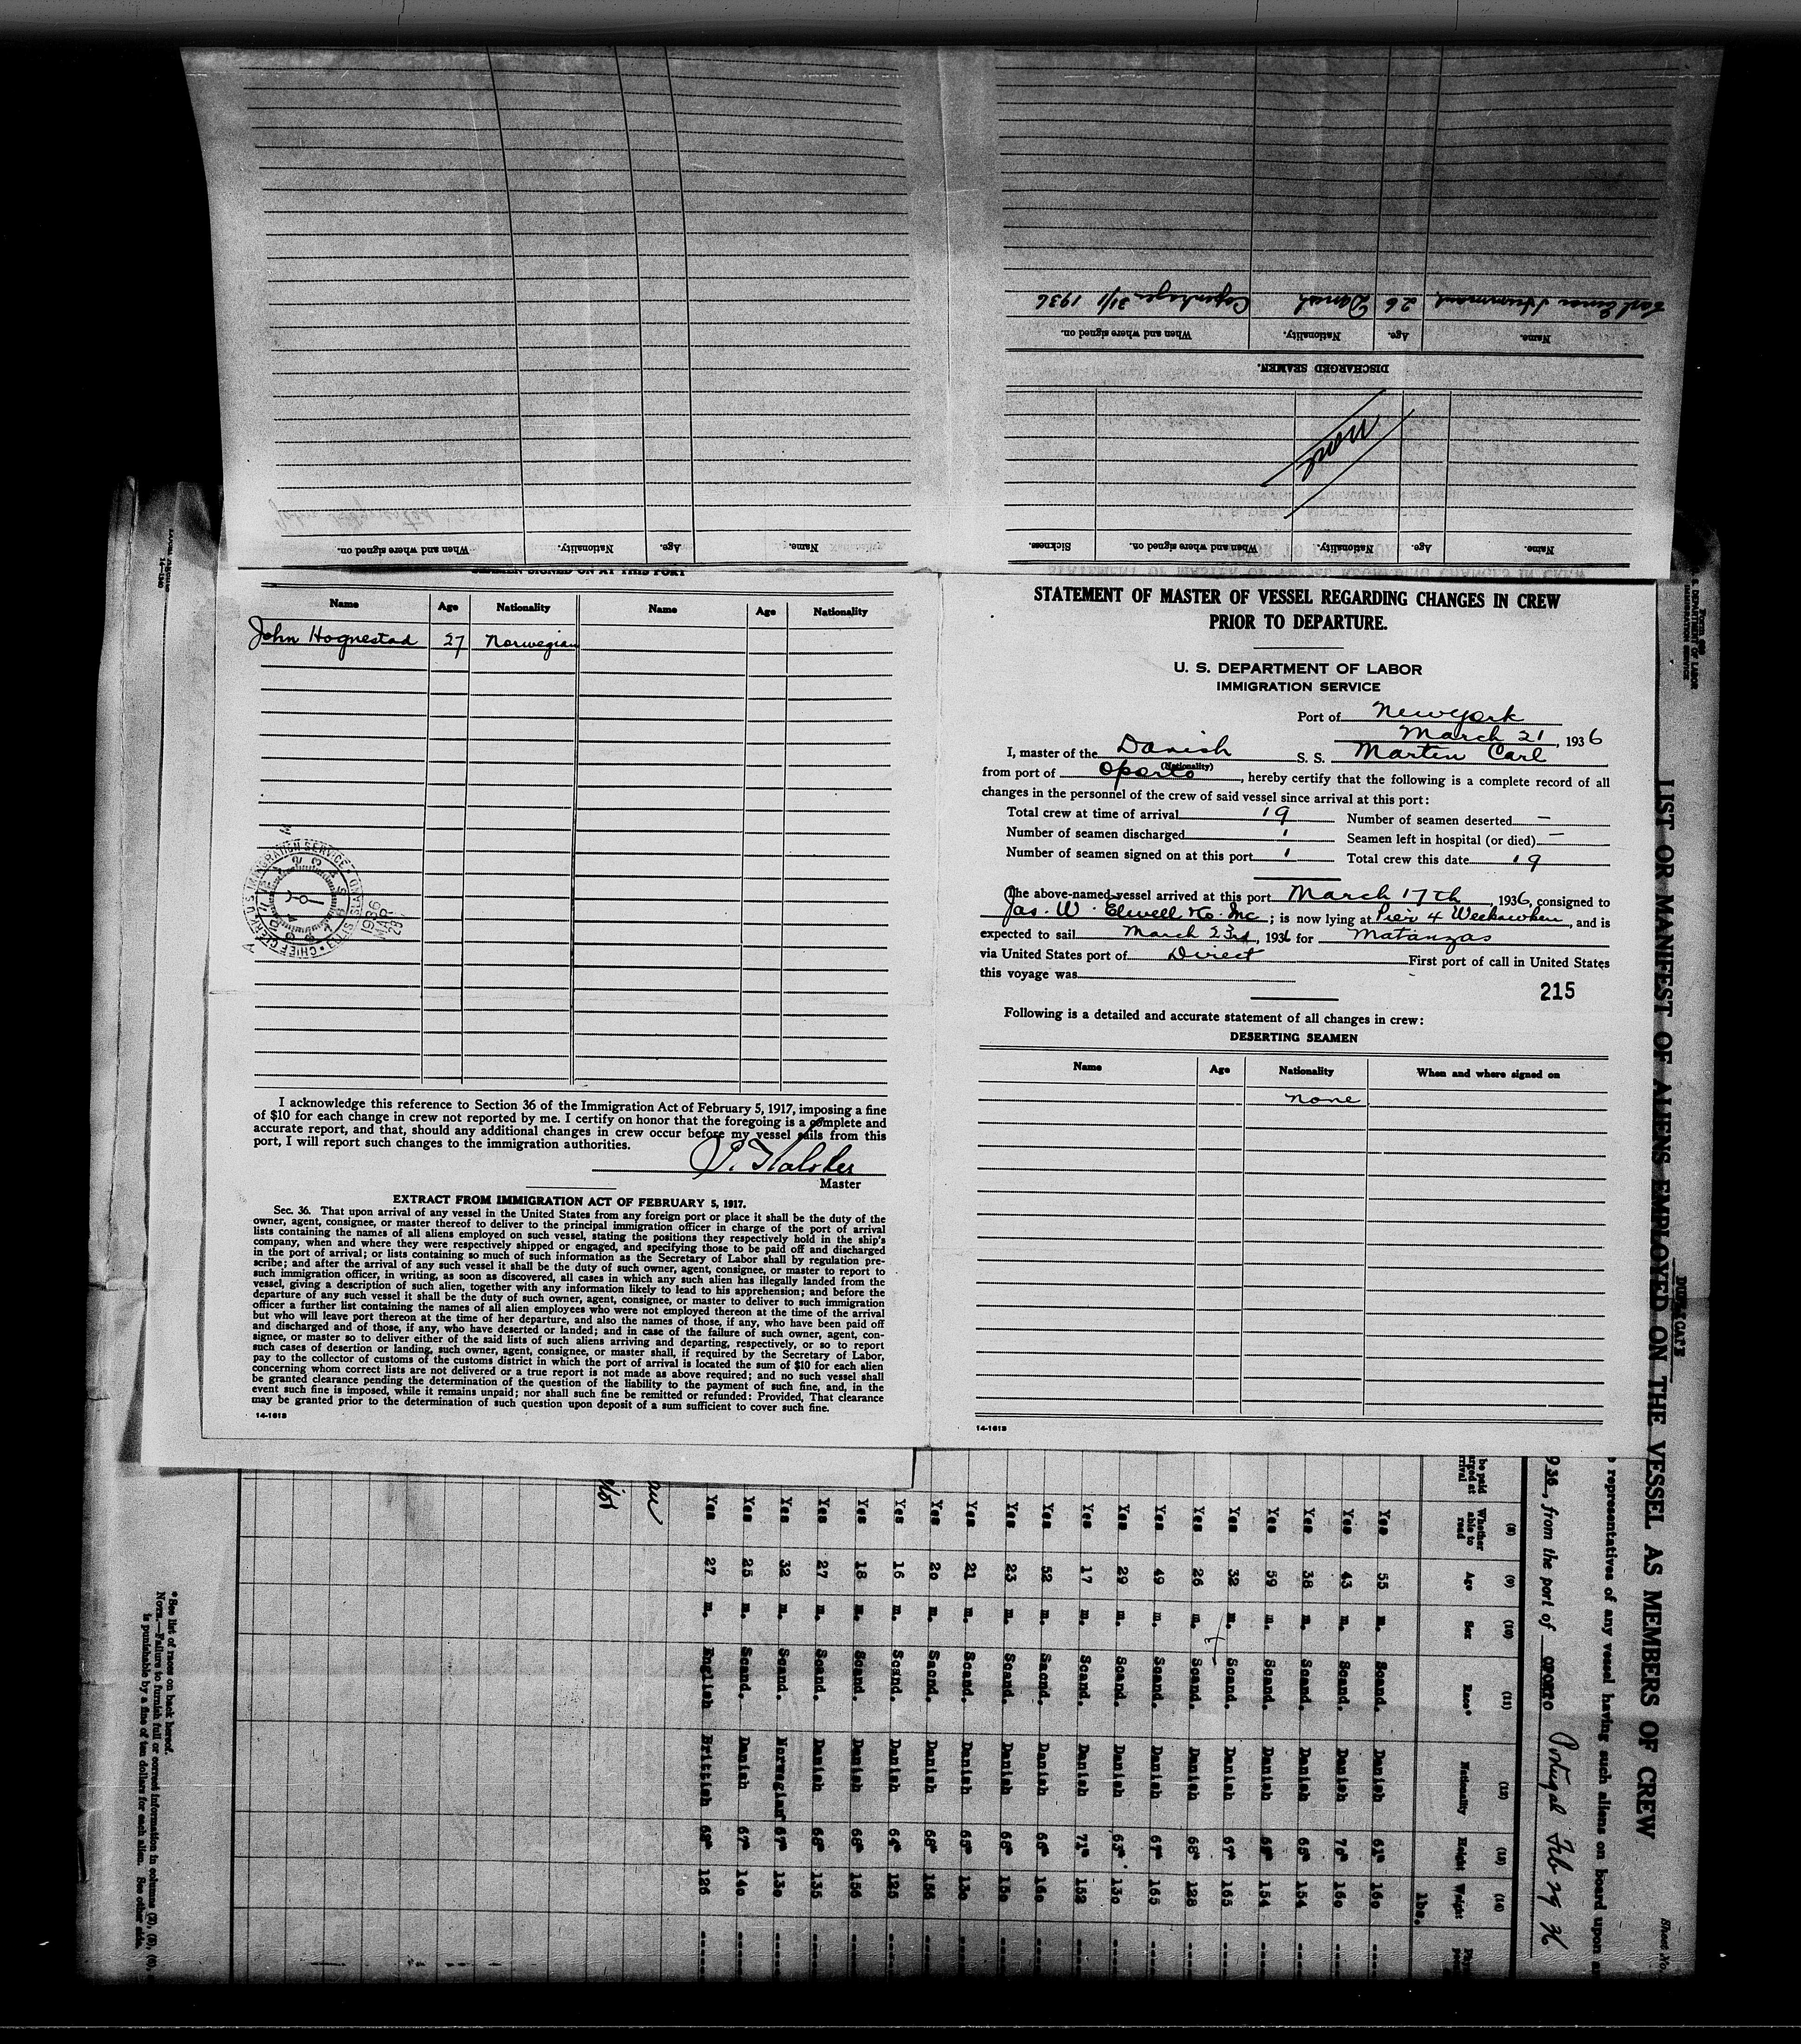 Karl Einar 26 Danish Copenhagen 31/1 1936
Name. Age. Nationality. When and where signed on.
DISCHARGED SEAMEN.
None
Name. Age. Nationality. When and where signed on. Sickness.
Name. Age. Nationality. When and where signed on.
SEAMEN SIGNED ON AT THIS PORT
Name Age Nationality Name Age Nationality
John Hognestad 27 Norwegian
CHIEF CLERK U.S. IMMIGRATION SERVICE ELLIS ISLAND
1936
MAR
23
I acknowledge this reference to Section 36 of the Immigration Act of February 5, 1917, imposing a fine
of $10 for each change in crew not reported by me. I certify on honor that the foregoing is a complete and
accurate report, and that, should any additional changes in crew occur before my vessel sails from this
port, I will report such changes to the immigration authorities.
Master
EXTRACT FROM IMMIGRATION ACT OF FEBRUARY 5, 1917.
Sec. 36. That upon arrival of any vessel in the United States from any foreign port or place it shall be the duty of the
owner, agent, consignee, or master thereof to deliver to the principal immigration officer in charge of the port of arrival
lists containing the names of all aliens employed on such vessel, stating the positions they respectively hold in the ship's
company, when and where they were respectively shipped or engaged, and specifying those to be paid off and discharged
in the port of arrival; or lists containing so much of such information as the Secretary of Labor shall by regulation pre-
scribe; and after the arrival of any such vessel it shall be the duty of such owner, agent, consignee, or master to report to
such immigration officer, in writing, as soon as discovered, all cases in which any such alien has illegally landed from the
vessel, giving a description of such alien, together with any information likely to lead to his apprehension; and before the
departure of any such vessel it shall be the duty of such owner, agent, consignee, or master to deliver to such immigration
officer a further list containing the names of all alien employees who were not employed thereon at the time of the arrival
but who will leave port thereon at the time of her departure, and also the names of those, if any, who have been paid off
and discharged and of those, if any, who have deserted or landed; and in case of the failure of such owner, agent, con-
signee, or master so to deliver either of the said lists of such aliens arriving and departing, respectively, or so to report
such cases of desertion or landing, such owner, agent, consignee, or master shall, if required by the Secretary of Labor,
pay to the collector of customs of the customs district in which the port of arrival is located the sum of $10 for each alien
concerning whom correct lists are not delivered or a true report is not made as above required; and no such vessel shall
be granted clearance pending the determination of the question of the liability to the payment of such fine, and, in the
event such fine is imposed, while it remains unpaid; nor shall such fine be remitted or refunded: Provided, That clearance
may be granted prior to the determination of such question upon deposit of a sum sufficient to cover such fine.
14-1613
STATEMENT OF MASTER OF VESSEL REGARDING CHANGES IN CREW
PRIOR TO DEPARTURE.
U. S. DEPARTMENT OF LABOR
IMMIGRATION SERVICE
Port of New York
March 21, 1936
I, master of the Danish S. S. Marten Carl
(Nationality)
from port of Oporto, hereby certify that the following is a complete record of all
changes in the personnel of the crew of said vessel since arrival at this port:
Total crew at time of arrival 19 Number of seamen deserted —
Number of seamen discharged 1 Seamen left in hospital (or died) —
Number of seamen signed on at this port 1 Total crew this date 19
The above-named vessel arrived at this port March 17th, 1936, consigned to
Jas. W. Elwell & Co. Inc; is now lying at Pier 4 Weehawken, and is
expected to sail March 23rd, 1936 for Matanzas
via United States port of Direct First port of call in United States
this voyage was
215
Following is a detailed and accurate statement of all changes in crew:
DESERTING SEAMEN
Name Age Nationality When and where signed on
None
14-1613
Form 689
U. S. DEPARTMENT OF LABOR
IMMIGRATION SERVICE
DUPLICATE
LIST OR MANIFEST OF ALIENS EMPLOYED ON THE VESSEL AS MEMBERS OF CREW
Sheet No.
representatives of any vessel having such aliens on board upon
1936, from the port of OPORTO Portugal Feb 29 36
(8) (9) (10) (11) (12) (13) (14)
Whether able to read Age Sex Race* Nationality Height Weight
lbs.
Yes 55 m. Scand. Danish 61" 160
Yes 43 m. Scand. Danish 70" 160
Yes 38 m. Scand. Danish 65" 154
Yes 59 m. Scand. Danish 68" 154
Yes 32 m. Scand. Danish 67" 165
Yes 26 m. Scand. Danish 68" 128
Yes 49 m. Scand. Danish 67" 165
Yes 29 m. Scand. Danish 63" 130
Yes 17 m. Scand. Danish 71" 152
Yes 52 m. Sacnd. Danish 66" 160
Yes 23 m. Scand. Danish 68" 150
Yes 21 m. Scand. Danish 65" 130
Yes 20 m. Sacnd. Danish 68" 156
Yes 16 m. Scand. Danish 64" 126
Yes 18 m. Scand. Danish 68" 156
Yes 27 m. Scand. Danish 68" 135
Yes 32 m. Scand. Norwegian 67" 130
Yes 25 m. Scand. Danish 67" 140
Yes 27 m. English Brittish 68" 126
*See list of races on back hereof.
NOTE.—Failure to furnish full or correct information in columns
is punishable by a fine of ten dollars for each alien. See other side.